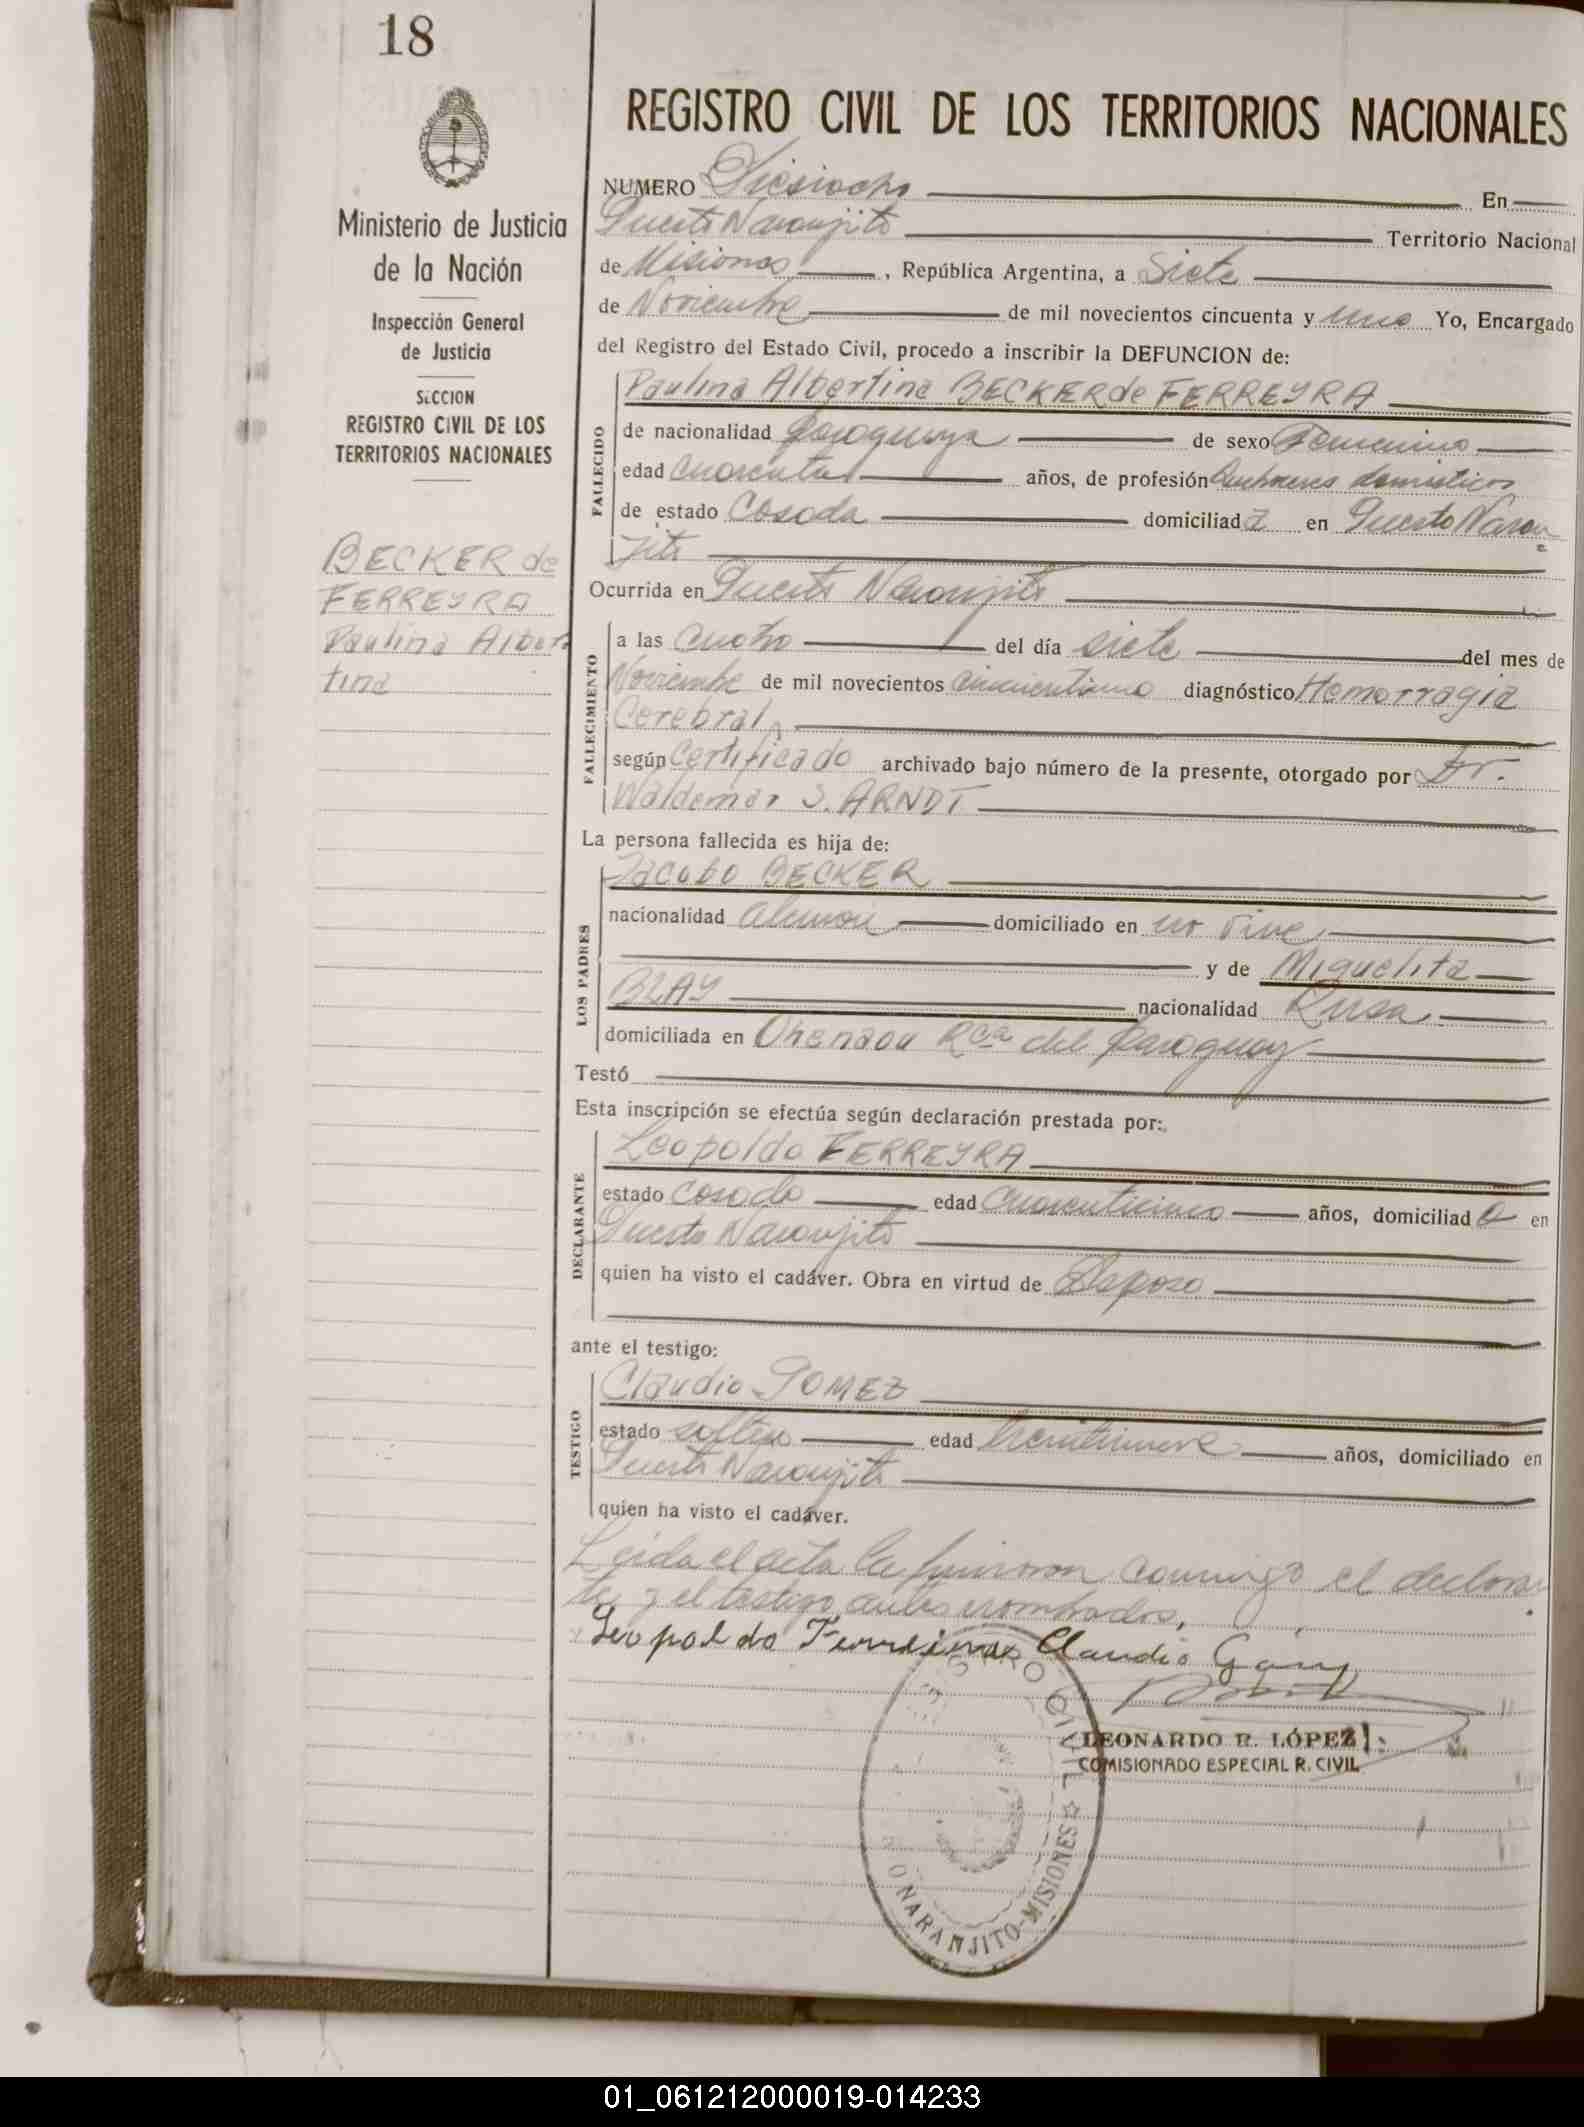 18
Ministerio de Justicia
de la Nación
Inspección General
de Justicia
SECCION
REGISTRO CIVIL DE LOS
TERRITORIOS NACIONALES
BECKER de
FERREYRA
Paulina Alber
tina
REGISTRO CIVIL DE LOS TERRITORIOS NACIONALES
NUMERO Diesiocho En
Puerto Naranjito Territorio Nacional
de Misiones, República Argentina, a Siete
de Noviembre de mil novecientos cincuenta y uno Yo, Encargado
del Registro del Estado Civil, procedo a inscribir la DEFUNCION de:
FALLECIDO
Paulina Albertina BECKER de FERREYRA
de nacionalidad Paraguaya de sexo Femenino
edad cuarenta años, de profesión Quehaceres domésticos
de estado Casada domiciliada en Puerto Naran
jito
Ocurrida en Puerto Naranjito
FALLECIMIENTO
a las cuatro del día siete del mes de
Noviembre de mil novecientos cincuentiuno diagnóstico Hemorragia
Cerebral
según Certificado archivado bajo número de la presente, otorgado por Dr.
Waldemar S. ARNDT
La persona fallecida es hija de:
LOS PADRES
Jacobo BECKER
nacionalidad Alemán domiciliado en no vive
y de Miguelita
BLAY nacionalidad Rusa
domiciliada en Ohenaou Rca del Paraguay
Testó
Esta inscripción se efectúa según declaración prestada por:
DECLARANTE
Leopoldo FERREYRA
estado casado edad cuarenticinco años, domiciliado en
Puerto Naranjito
quien ha visto el cadáver. Obra en virtud de Esposo
ante el testigo:
TESTIGO
Claudio GOMEZ
estado soltero edad treintinueve años, domiciliado en
Puerto Naranjito
quien ha visto el cadáver.
Leída el acta la firmaron conmigo el declaran
te y el testigo antes nombrados.
Leopoldo Ferreira Claudio
LEONARDO R. LÓPEZ
COMISIONADO ESPECIAL R. CIVIL
CIVIL ☆
O NARANJITO-MISIONES
01_061212000019-014233